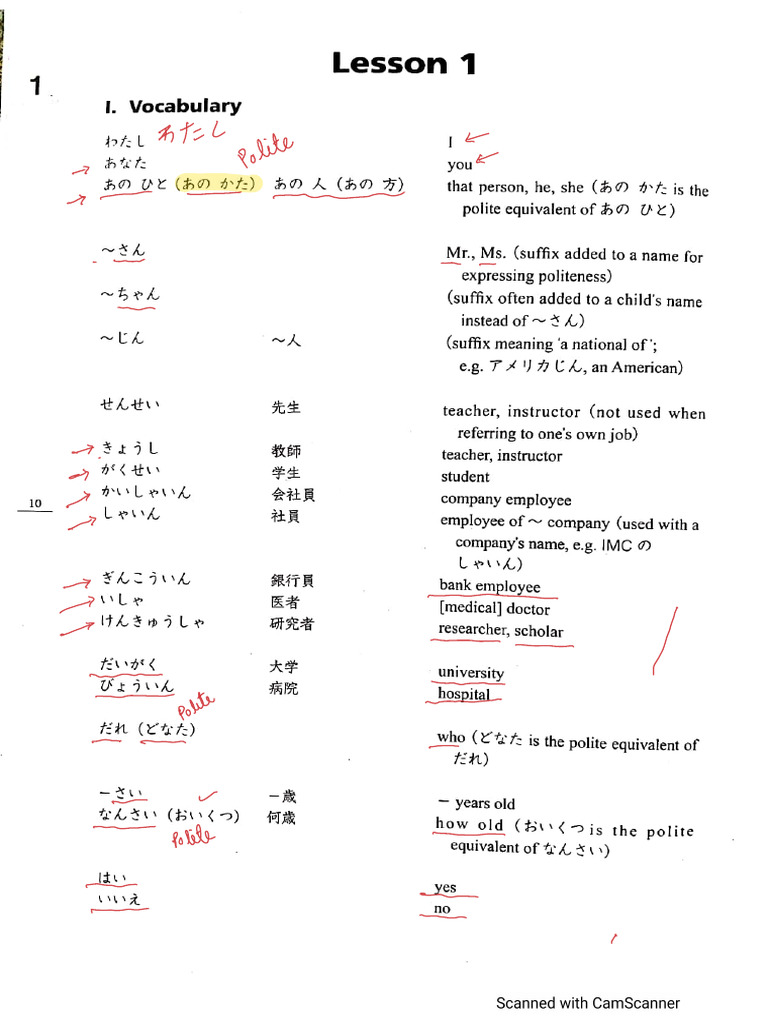 Lesson 1
1
I. Vocabulary
わたし わたし I
Polite
あなた you
あの ひと (あの かた) あの 人 (あの 方) that person, he, she (あの かた is the
polite equivalent of あの ひと)
～さん Mr., Ms. (suffix added to a name for
expressing politeness)
～ちゃん (suffix often added to a child's name
instead of ～さん)
～じん ～人 (suffix meaning 'a national of';
e.g. アメリカじん, an American)
せんせい 先生 teacher, instructor (not used when
referring to one's own job)
きょうし 教師 teacher, instructor
がくせい 学生 student
かいしゃいん 会社員 company employee
10
しゃいん 社員 employee of ～ company (used with a
company's name, e.g. IMC の
しゃいん)
ぎんこういん 銀行員 bank employee
いしゃ 医者 [medical] doctor
けんきゅうしゃ 研究者 researcher, scholar
だいがく 大学 university
びょういん 病院 hospital
Polite
だれ (どなた) who (どなた is the polite equivalent of
だれ)
－さい －歳 － years old
なんさい (おいくつ) 何歳 how old (おいくつ is the polite
Polite
equivalent of なんさい)
はい yes
いいえ no
Scanned with CamScanner